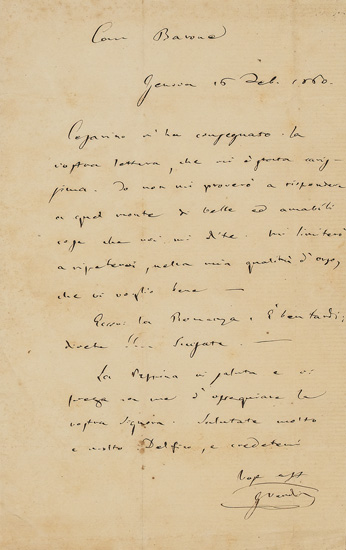 Caro Barone
Genova 16 Feb. 1860.
Cesarino m'ha consegnato la
vostra lettera, che mi è stata
Io non mi proverò a rispondere
a quel monte di belle ed amabili
cose che voi mi dite. Mi limiterò
a ripetervi, nella mia qualità d'orso,
che vi voglio bene —
Eccovi la Romanza. È ben tardi;
direte Scusate. —
La Peppina vi saluta e vi
prega con me d'ossequiare la
vostra Signora. Salutate molto
e molto Delfico, e credetemi
Vos. aff.
G Verdi